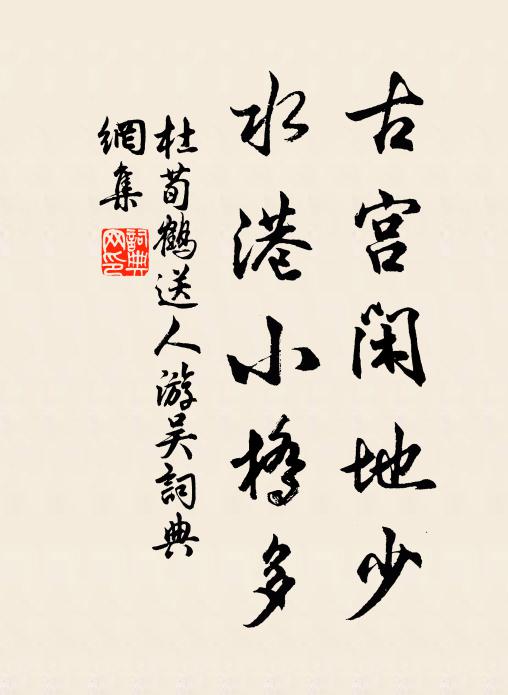 古宫闲地少
水港小橋多
杜荀鶴送人游吴詞典
網集
詞典網印